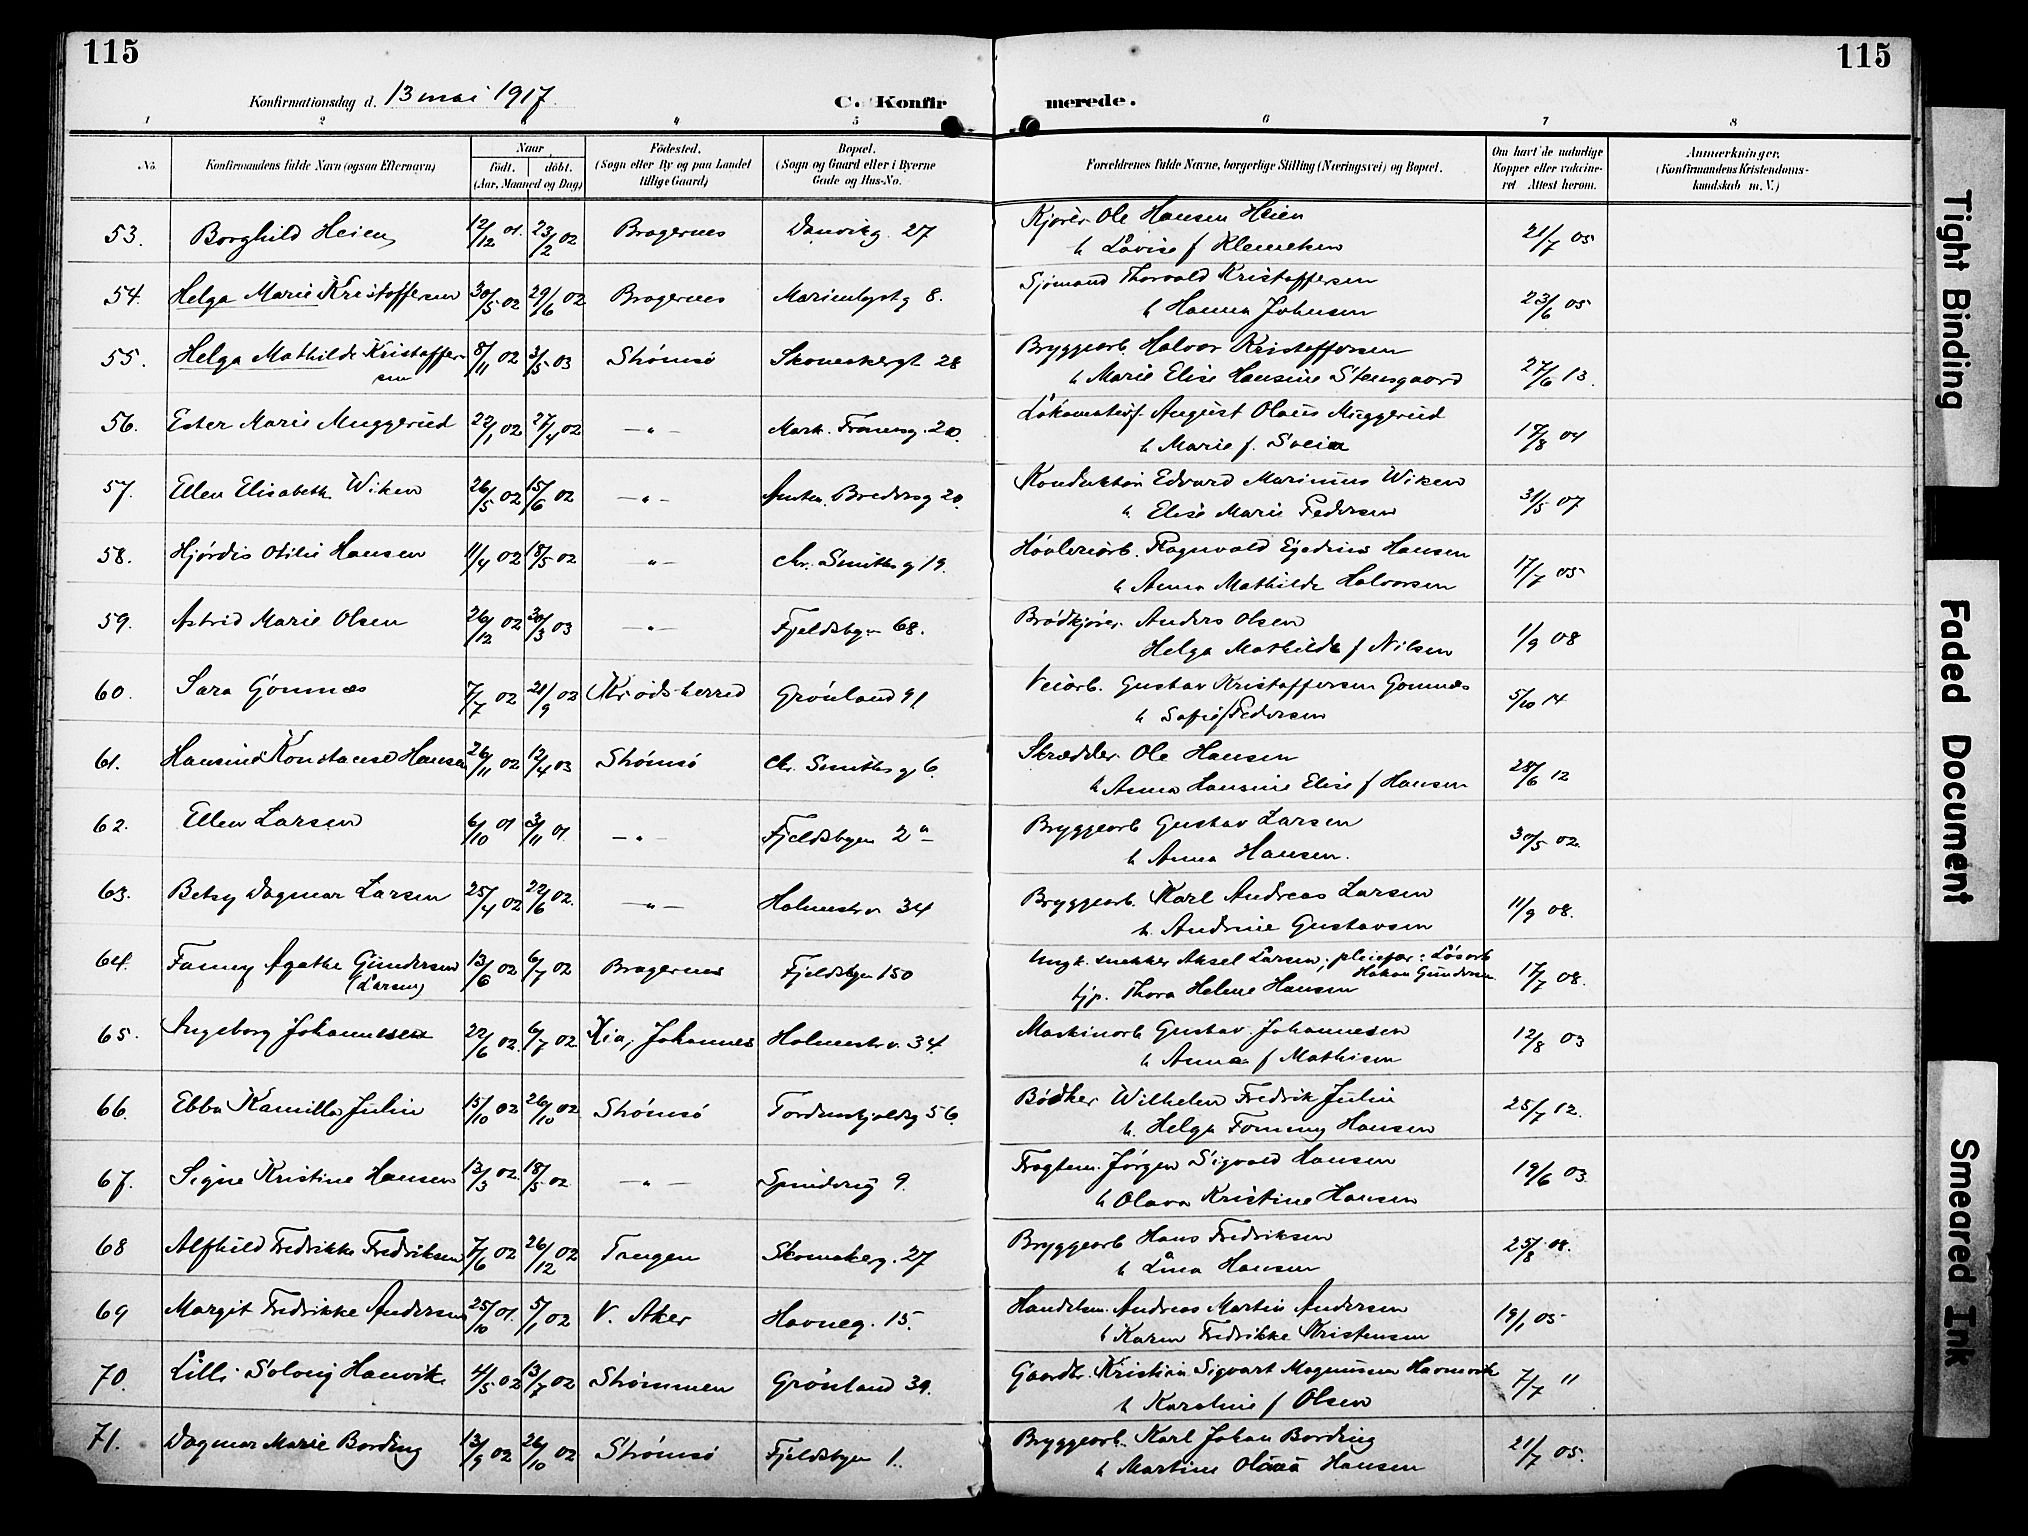 115
115
Konfirmationsdag d. 13 mai 1917.
C. Konfir
merede.
1 2 3 4 5 6 7 8
No. Konfirmandens fulde Navn (ogsaa Efternavn) Naar født. døbt. (Aar, Maaned og Dag) Fødested. (Sogn eller By og paa Landet tillige Gaard) Bopæl. (Sogn og Gaard eller i Byerne Gade og Hus-No. Forældrenes fulde Navne, borgerlige Stilling (Næringsvei) og Bopæl. Om havt de naturlige Kopper eller vaccineret Attest herom. Anmærkninger. (Konfirmandens Kristendomskundskab m. V.)
53. Borghild Heien 12/12 01. 23/2 02 Bragernes Danvikg. 27 Kjører Ole Hansen Heien 21/7 05
h Lovise f Klemetsen
54. Helga Marie Kristoffersen 30/5 02 29/6 02 Bragernes Marienlystg 8. Sjømand Thorvald Kristoffersen 23/6 05
h Hanna Johnsen
55. Helga Mathilde Kristoffer 8/11 02 3/5 03 Strømsø 28 Bryggearb. Halvor Kristoffersen 27/6 13.
sen
h Marie Elise Hansine Stensgaard
56. Ester Marie Muggerud 22/1 02 27/4 02 —"— 20. August Olaus Muggerud 17/8 04
h Marie f.
57. Ellen Elisabeth Wiken 26/5 02 15/6 02 —"— 20. Konduktør Edvard Marinius Wiken 31/5 07
h. Elise Marie Pedersen
58. Hjørdis Otilie Hansen 11/4 02 18/5 02 "— Chr. Smiths g 19. Høvleriarb. Ragnvald Egedius Hansen 17/7 05
h Anna Mathilde Halvorsen
59. Astrid Marie Olsen 26/12 02 30/3 03 —"— Fjeldsbyen 68. Brødkjører Anders Olsen 1/9 08
Helga Mathilde f Nilsen
60. Sara Gomnæs 7/7 02 21/9 02 Krødsherred Grønland 91 Veiarb. Gustav Kristoffersen Gomnæs 5/10 14
h Sofie f Pedersen
61. Hansine Konstanse Hansen 26/11 02 12/4 03 Strømsø Chr. Smiths g 6. Skrædder Ole Hansen 28/6 12
h Anna Hansine Elise f Hansen
62. Ellen Larsen 6/10 01 3/11 01. —"— Fjeldsbyen 2 a Bryggearb Gustav Larsen 30/5 02.
h Anna Hansen.
63. Betsy Dagmar Larsen 25/4 02 22/6 02. —"— Holmestr.v. 34 Bryggearb. Karl Andreas Larsen 11/9 08.
h. Andrine Gustavsen
64. Fanny Agathe Gundersen 13/6 02 6/7 02 Bragernes Fjeldsbyen 150 Ungk. snekker Aksel Larsen; pleiefar: Løsarb 17/7 08.
(Larsen)
Håkon Gundersen
tjp. Thora Helene Hansen
65. Ingeborg Johannesen 22/6 02. 6/7 02 Kia, Johannes Holmestr.v. 34. Maskinarb Gustav Johannesen 12/8 03
h Anna f Mathisen
66. Ebba Kamilla Julin 15/10 02 26/10 02 Strømsø Tordenskjoldsg 56. Bødker Wilhelm Fredrik Julin 25/7 12.
h. Helga Fanny Hansen
67. Signe Kristine Hansen 13/3 02. 18/5 02 —"— 9. Jørgen Sigvald Hansen 19/6 03.
h Olava Kristine Hansen
68 Alfhild Fredrikke Fredriksen 7/6 02 26/12 02 Tangen Skomakerg. 27 Bryggearb Hans Fredriksen 25/8 08.
h Lina Hansen
69 Margit Fredrikke Andersen 25/10 01. 5/1 02 V. Aker Havneg. 15. Handelsm. Andreas Martin Andersen 19/1 05
h Karen Fredrikke Kristensen
70. Lilli Solveig Hanvik 4/5 02 13/7 02 Strømmen Grønland 39. Gaardbr. Kristian Sigvart Magnussen 7/7 "
h Karoline f Olsen
71. Dagmar Marie Bording 13/9 02 26/10 02 Strømsø Fjeldsbyen 1. Bryggearb. Karl Johan Bording 21/7 05.
h Martine Olava Hansen
Tight Binding
Faded Document
Smeared Ink